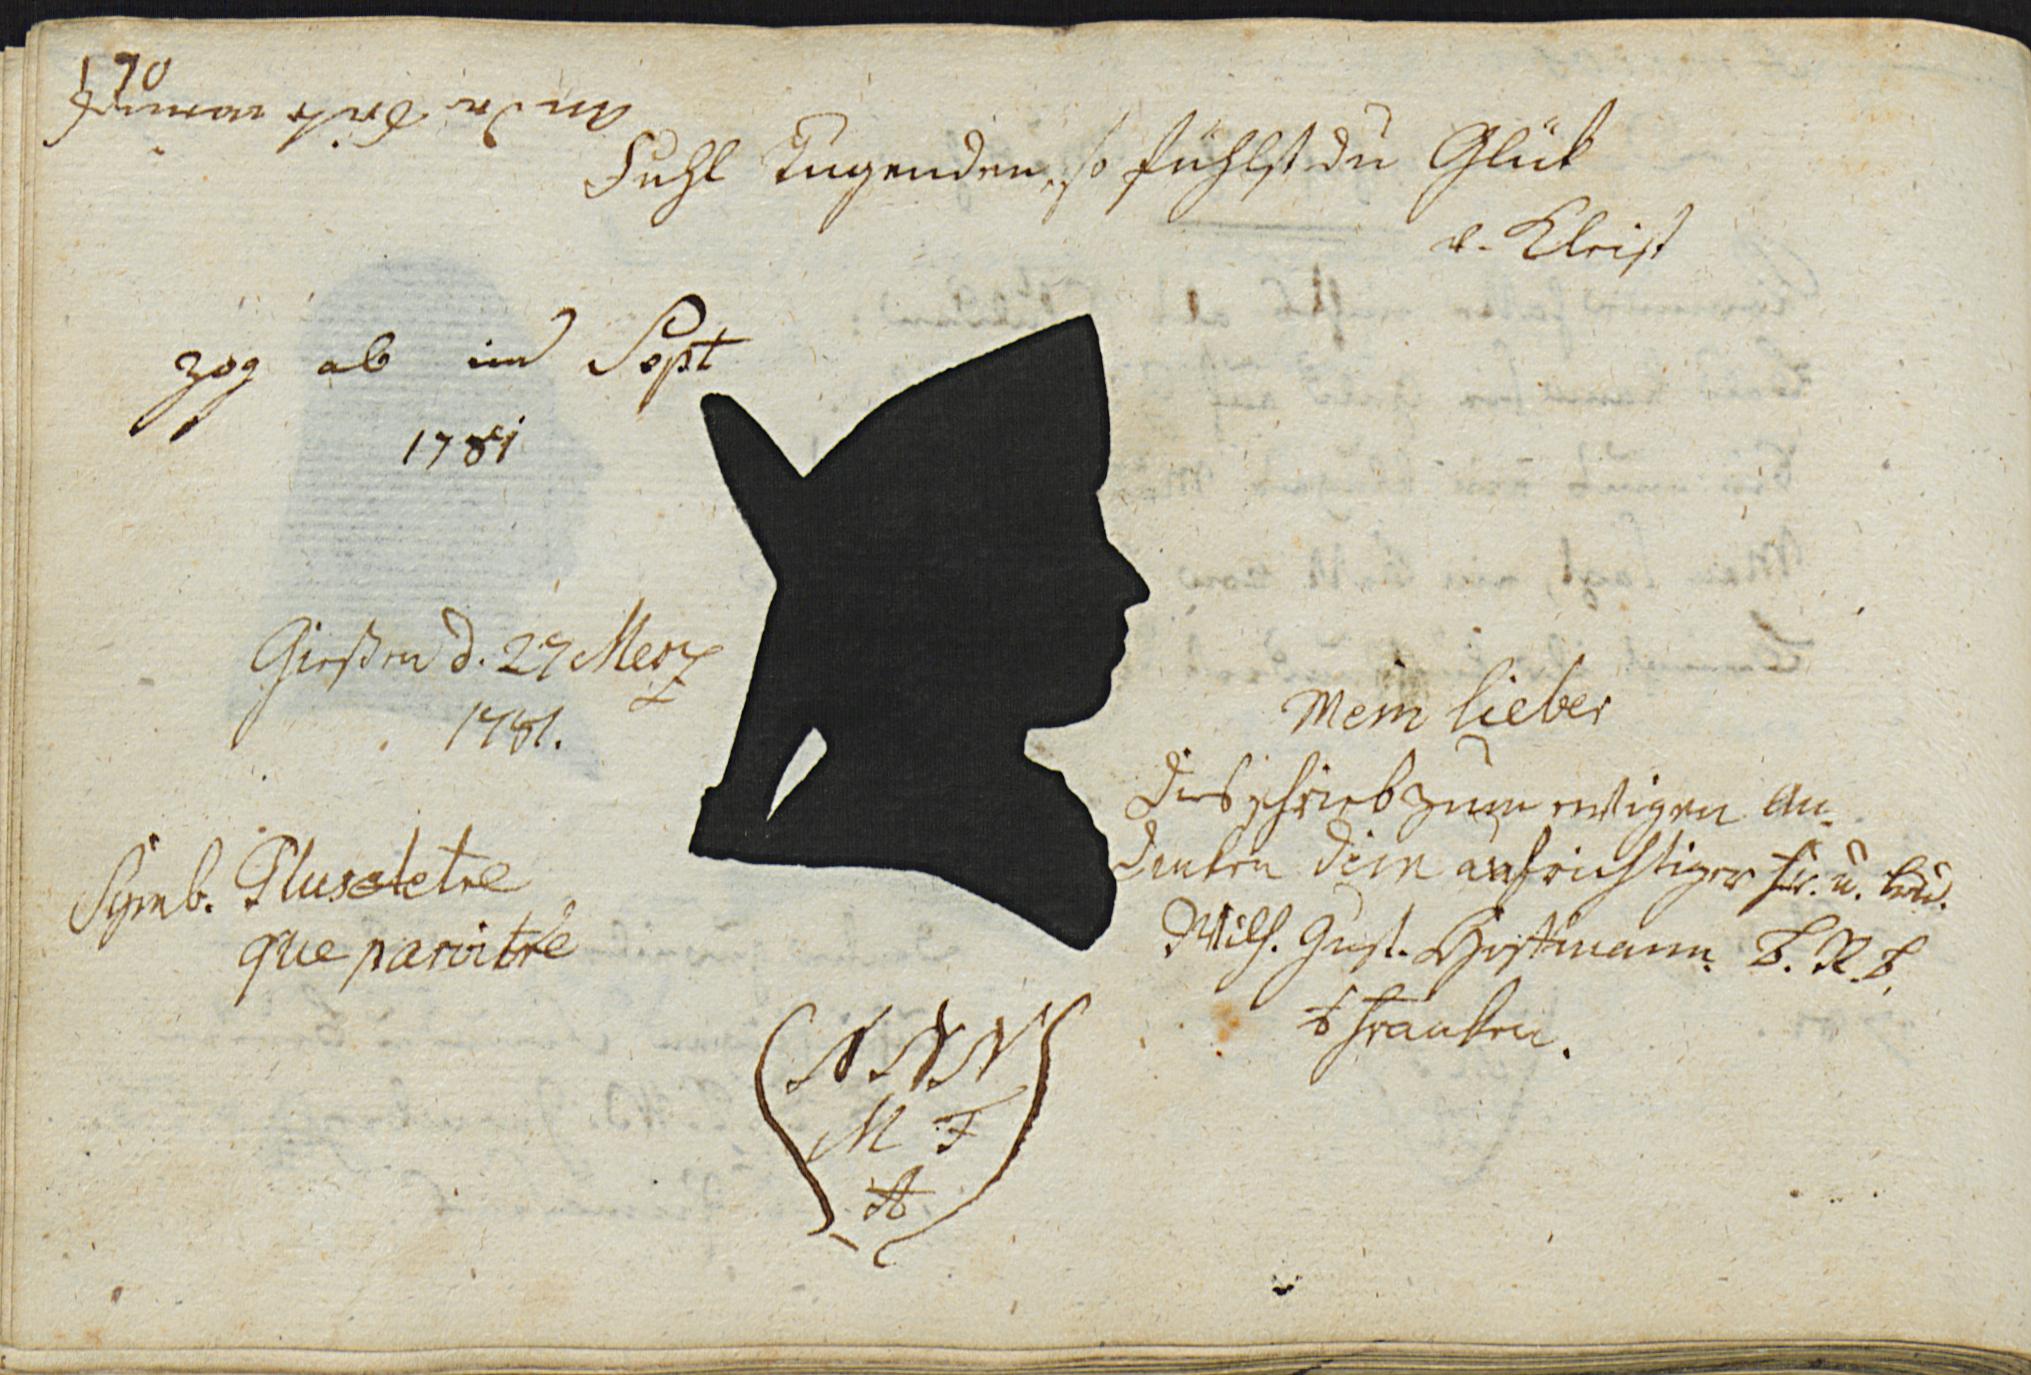 170
Fühl Tugenden, so fühlst du Glük
v. Kleist
zog ab im Sept
1781
Gießen d. 27 Merz
1781.
Mein lieber
Dies schrieb zum ewigen An-
denken Dein aufrichtiger Fr. u. Bru.
Wilh. Gust. Hoffmann
Franken.
Symb. Plus etre
que paroitre
M F